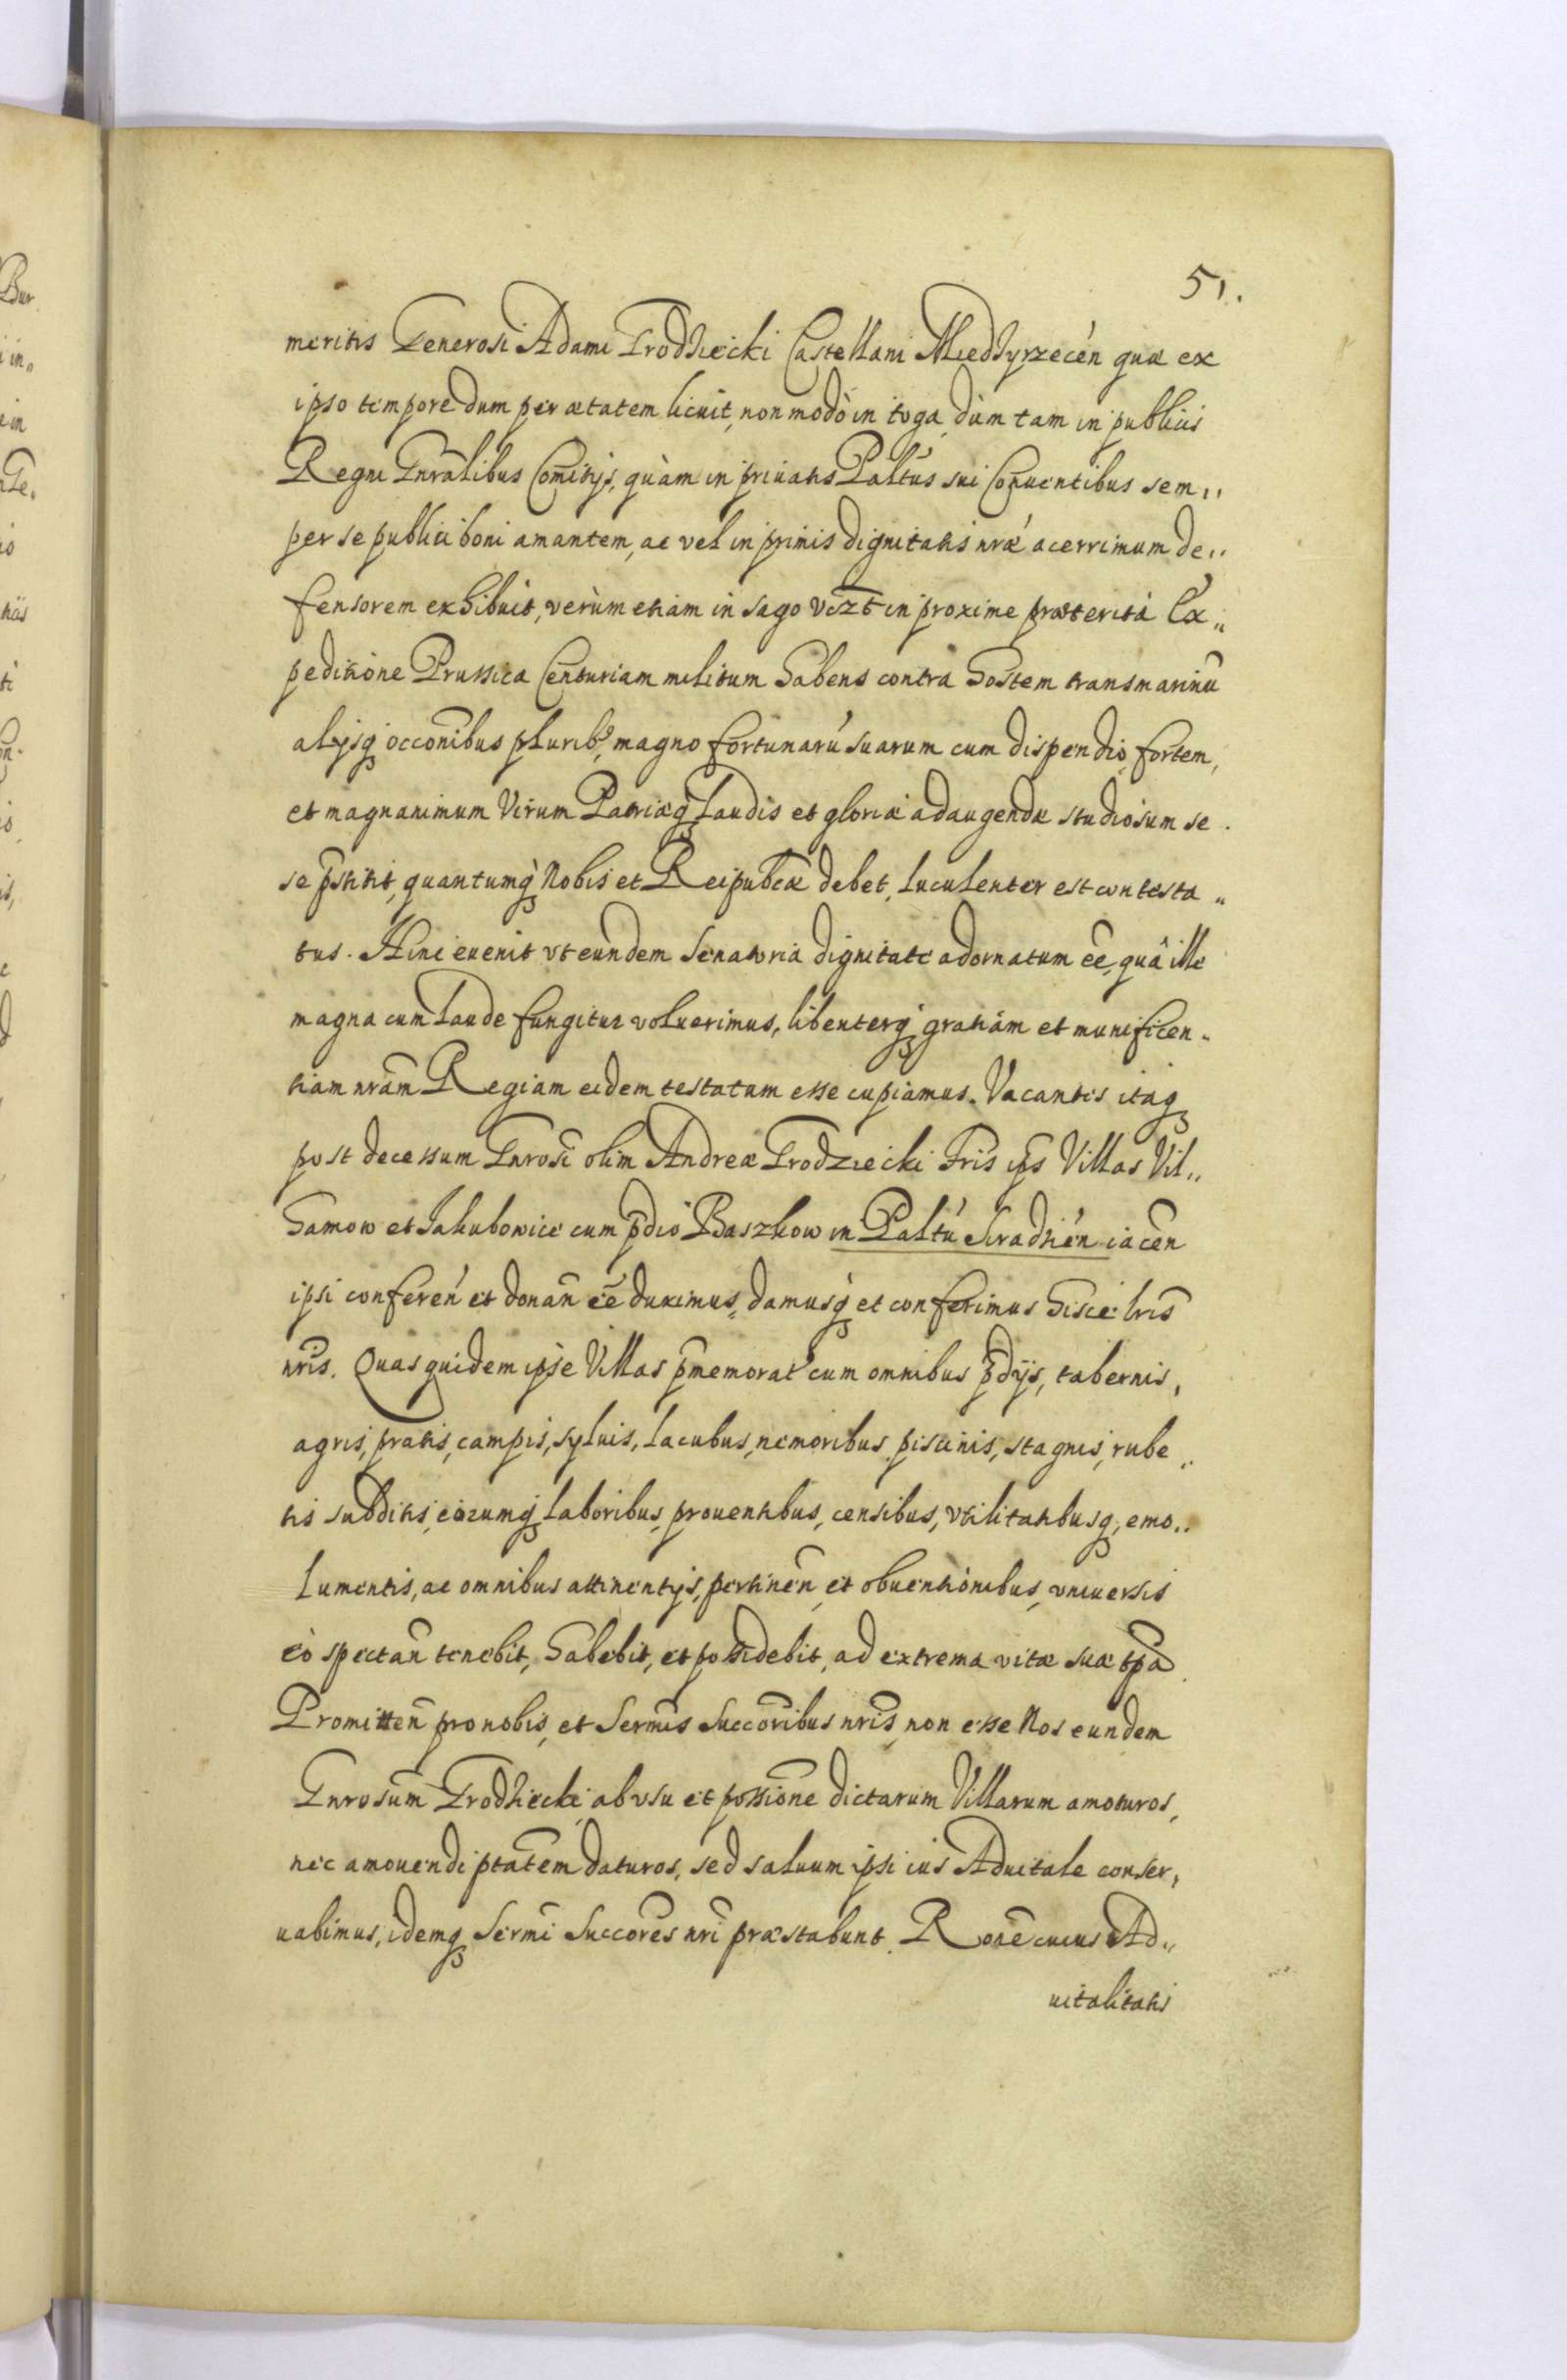 51.
meritis Generosi Adami Grodziecki Castellani Miedzyrzecén quæ ex
ipso tempore dum per ætatem licuit, non modò in toga, dùm tam in publicis
Regni Gnrãlibus Comitijs, quàm in priuatis Paltûs sui Conuentibus sem„
per se publici boni amantem, ac vel in primis dignitatis nræ acerrimum de„
fensorem exhibuit, verùm etiam in sago vizt in proxime præterità Ex„
peditione Prussica Centuriam militum habens contra hostem transmarinũ
alijsq occõnibus pluribꝰ, magno fortunarú suarum cum dispendio, fortem,
et magnanimum Virum Patriæq Laudis et gloriæ adaugendæ studiosum se
se p̃stitit, quantumq̀ Nobis et Reipubcæ debet, luculenter est contesta„
tus. Hinc euenit vt eundem Senatoria dignitate adornatum eẽ, quâ ille
magna cum Laude fungitur voluerimus, libenterq gratiam et munificen„
tiam nrãm Regiam eidem testatam esse cupiamus. Vacantes itaq
post decessum Gnrosi olim Andreæ Grodziecki Fris ips Villas Vil„
hamow et Jakubowice cum p̃dio Baszkow in Paltú Siradién iacen̄
ipsi conferén et donañ eẽ duximus, damusq̀ et conferimus hisce lris̃
nris̃. Quas quidem ipse Villas p̃memorat cum omnibus p̃dijs, tabernis,
agris, pratis, campis, syluis, lacubus, nemoribus, piscinis, stagnis, rube„
tis subditis, eorumq̀ laboribus, prouentibus, censibus, vtilitatibusq, emo„
lumentis, ac omnibus attinentijs, pertineñ, et obuentionibus, vniuersis
eò spectañ tenebit, habebit, et possidebit, ad extrema vitæ suæ tp̃a
Promitteñ pro nobis, et Sermis Succoribus nris̃, non esse Nos eundem
Gnrosum Grodziecki, ab vsu et possione dictarum Villarum amoturos,
nec amouendi ptatem daturos, sed saluum ipsi ius Aduitale conser,
uabimus, idemq Sermi Succores nri præstabunt. Rone cuius Ad„
uitalitatis